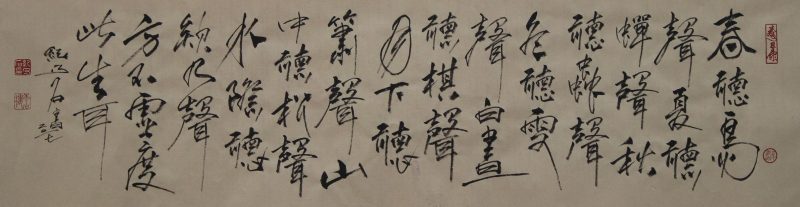 春聽鳥
聲夏聽
蟬聲秋
聽蟲聲
冬聽雪
聲白晝
聽棋聲
月下聽
簫聲山
中聽松聲
水際聽
欸乃聲
方不虛度
此生耳